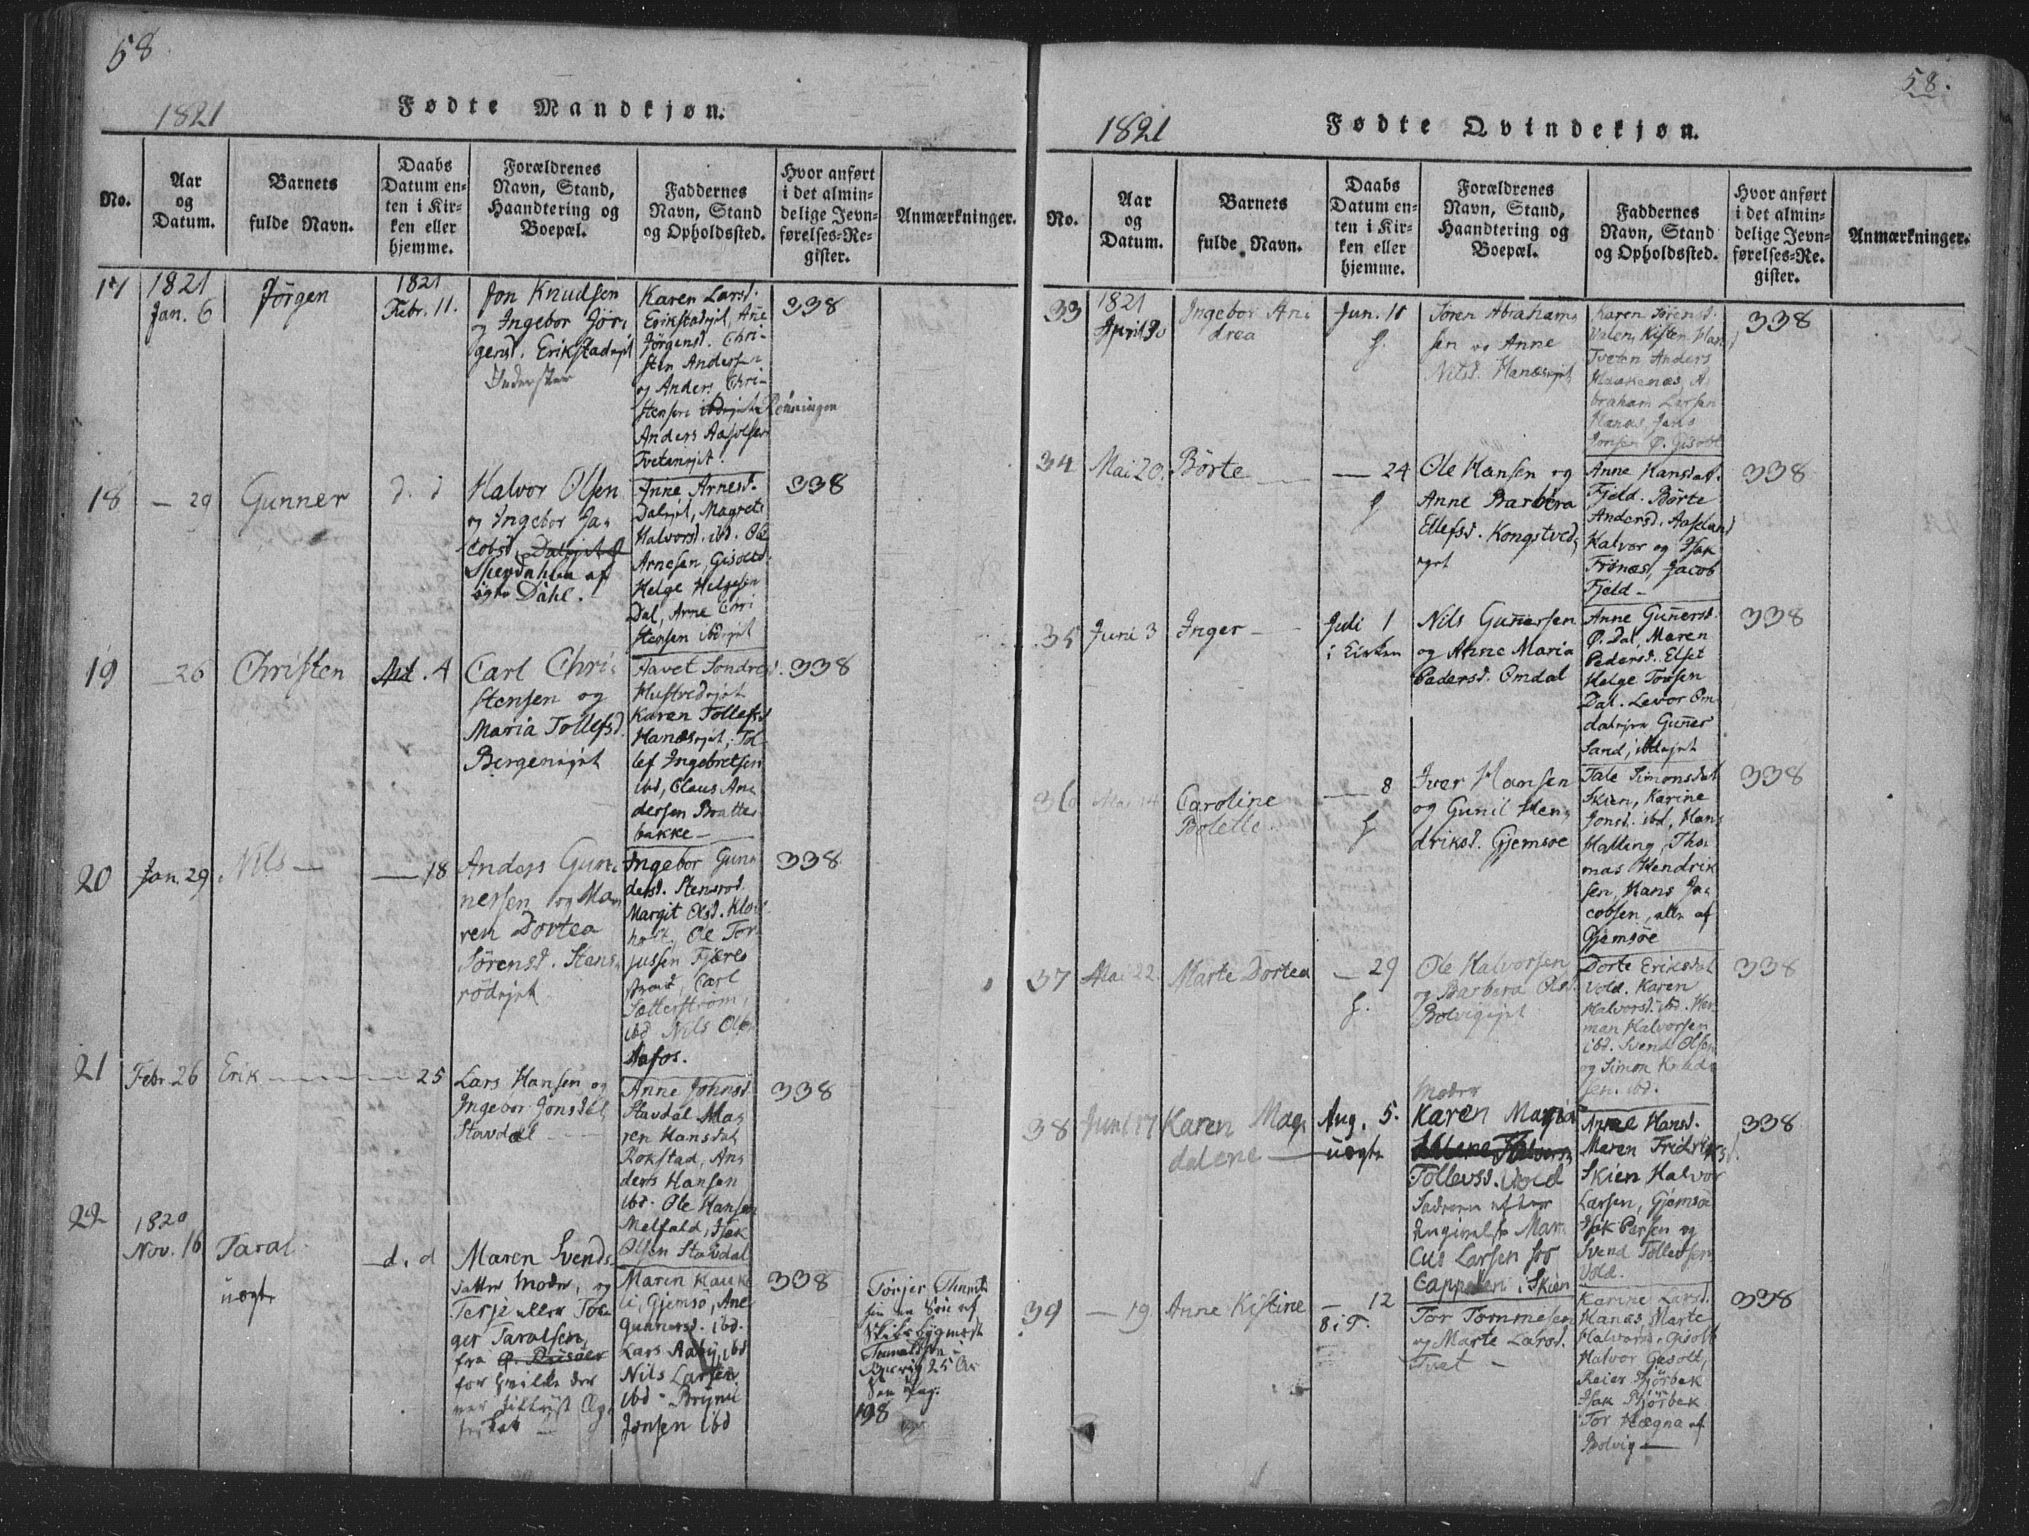 58.
1821
Fødte Mandkjøn.
No.
Aar
og
Datum.
Barnets
fulde Navn.
Daabs
Datum en-
ten i Kir-
ken eller
hjemme.
Forældrenes
Navn, Stand,
Haandtering og
Boepæl.
Faddernes
Navn, Stand
og Opholdssted.
Hvor anført
i det almin-
delige Jevn-
førelses-Re-
gister.
Anmærkninger.
17
1821
Jan. 6
Jörgen
1821
Febr. 11.
Jon Knudsen
og Ingebor Jör-
gensd. Erikstadejet
Inderster
Karen Larsd.
Erikstadejet, Ane
Jörgensd. Chri-
sten Andersen
og Anders Chri-
stensen ibdejet Rönningen
Anders Aasolsen
Tvetanejet.
338
18
— 29
Gunner
d. d
Halvor Olsen
og Ingebor Ja-
cobsd. Dalejet
af
Dahl.
Anne Arnesd.
Dalejet, Magrete
Halvorsd. ibd. Ole
Arnesen, Gisolt
Helge Helgesen
Dal, Arne Chri
stensen ibdejet
338
19
— 26
Christen
Md. 4
Carl Chri-
stensen og
Maria Tollefsd.
Bergenejet
Aavet Sondresd.
Hustvedejet
Karen Tollefsd
Hanæsejet, Tol-
lef Ingebretsen
ibd, Claus An-
dersen Bratte-
bakke —
338
20
Jan. 29
Nils —
— 18
Anders Gun-
nersen og Ma-
ren Dortea
Sörensd. Stens-
rödejet
Ingebor Gun-
dersd. Stensrod
Margit Olsd. Klov-
holt, Ole Tor-
jussen Fjære-
strand, Carl
Sætterström,
ibd Nils Olsen
Aafos.
338
21
Febr. 26
Erik —
— 25
Lars Hansen og
Ingebor Jonsdat.
Stavdal —
Anne Johnsd
Stavdal Ma-
ren Hansdat
Rokstad, An-
ders Hansen
ibd. Ole Hansen
Melfald, Isak
Olsen Stavdal
338
22
1820
Nov. 16
Taral
uægte
— d. d
Maren Svends-
datter Moder, og
Terje eller Tor-
ger Taralsen,
fra Ö. Riisöer
for hvilke der
var tillyst Æg-
teskab —
Maren Hauke-
li, Gjemsö, Ane
Gunnersd. ibd.
Lars Aaby, ibd
Nils Larsen
ibd - Brynil
Jonsen ibd
338
198
58.
1821
Fødte Qvindekjøn.
No.
Aar
og
Datum.
Barnets
fulde Navn.
Daabs
Datum en-
ten i Kir-
ken eller
hjemme.
Forældrenes
Navn, Stand,
Haandtering og
Boepæl.
Faddernes
Navn, Stand
og Opholdssted.
Hvor anført
i det almin-
delige Jevn-
førelses-Re-
gister.
Anmærkninger.
33
1821
April 30
Ingebor An-
drea
Jun. 11
Sören Abraham-
sen og Anne
Nilsd. Hanæsejet
Karen Sörensd.
Valen, Kisten Han
Tveten Anders
Haukenæs, A-
braham Larsen
Hanæs, Jens
Jonsen Ö. Gisolt
338
34
Mai 20.
Börte —
— 24
Ole Hansen og
Anne Barbera
Ellefsd. Kongstved-
ejet
Anne Hansdat.
Fjeld. Börte
Andersd. Aaseland
Halvor og Isak
Frönæs, Jacob
Fjeld —
338
35
Juni 3
Inger —
Juli 1
i Kirken
Nils Gunersen
og Anne Maria
Pedersd. Omdal
Anne Gunersd.
Ö. Dal, Maren
Pedersd. Elset
Helge Torsen
Dal. Levor Om-
dalejen Guner
Sand, ibdejet
338
36
Mai 14
Caroline
Bolette.
— 8
Ivar Hansen
og Gunil Hen-
driksd. Gjemsoe
Tale Simonsdat
Skien, Karine
Jonsd. ibd, Hans
Halling, Tho-
mas Hendrik-
sen, Hans Ja-
cobsen, alle af
Gjemsöe
338
37
Mai 22.
Marte Dortea
— 29
Ole Halvorsen
og Barbera Olsd.
Bolvigejet
Dorte Eriksdat
Vold. Karen
Halvorsd. ibd. Her-
man Halvorsen
ibd. Svend Olsen
og Simon Knud-
sen. ibd.
338
38
Juni 17
Karen Mag-
dalene —
Aug. 5.
uægte
Moder
Karen Maria
Tollevsd. Vold
Faderen efter
Angivelse Mar-
cus Larsen hos
Cappelen i Skien
Anne Hansd.
Maren Fridriksd.
Skien Halvor
Larsen, Gjemsöe
Isak Persen og
Svend Tollevsen
Vold.
338
39
— 19
Anne Kistine
— 12
8 i T.
Tor Tommesen
og Marte Larsd.
Tvet —
Karine Larsd.
Hanæs, Marte
Halvorsd. Gisolt
Halvor Gisolt,
Reier Bjorbek
Isak Bjorbek
Tor Hægna af
Bolvig —
338